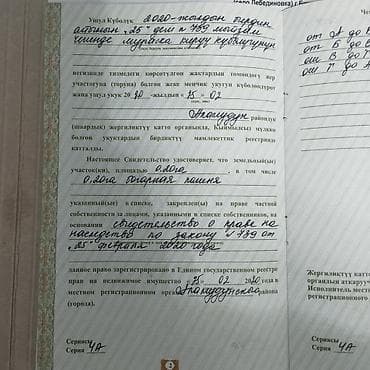 Ушул Күбөлүк 2020-жылдын
"25" № 789
мураска укугу күбөлүгүнүн
негизинде тизмедеги көрсөтүлгөн жактардын төмөндөгү жер
участогуна (торуна) болгон жеке менчик укугун күбөлөндүрөт
жана ушул укук 2020-жылдын «25» 02
Аламудун райондук
(шаардык) жергиликтүү катто органында, Кыймылсыз мүлккө
болгон укуктардын бирдиктүү мамлекеттик реестринде
катталды.
Настоящее Свидетельство удостоверяет, что земельный(ые)
участок(ки), площадью 0.20га, в том числе
0.20га богарная пашня
указанный(ые) в списке, закреплен(ы) на праве частной
собственности за лицами, указанными в списке собственников, на
основании свидетельство о праве на
наследство по закону №789 от
"25" февраля 2020 года
данное право зарегистрировано в Едином государственном реестре
прав на недвижимое имущество «25» 02 2020 года в
местном регистрационном органе Аламудунского района
(города).
Сериясы
Серия ЧА
2
Лебединовка) г.
от А до
от Б до
от В до
от Г до
Жергиликтүү катто
органдын аткаруу
Исполнитель местн
регистрационного
Сериясы
Серия ЧА